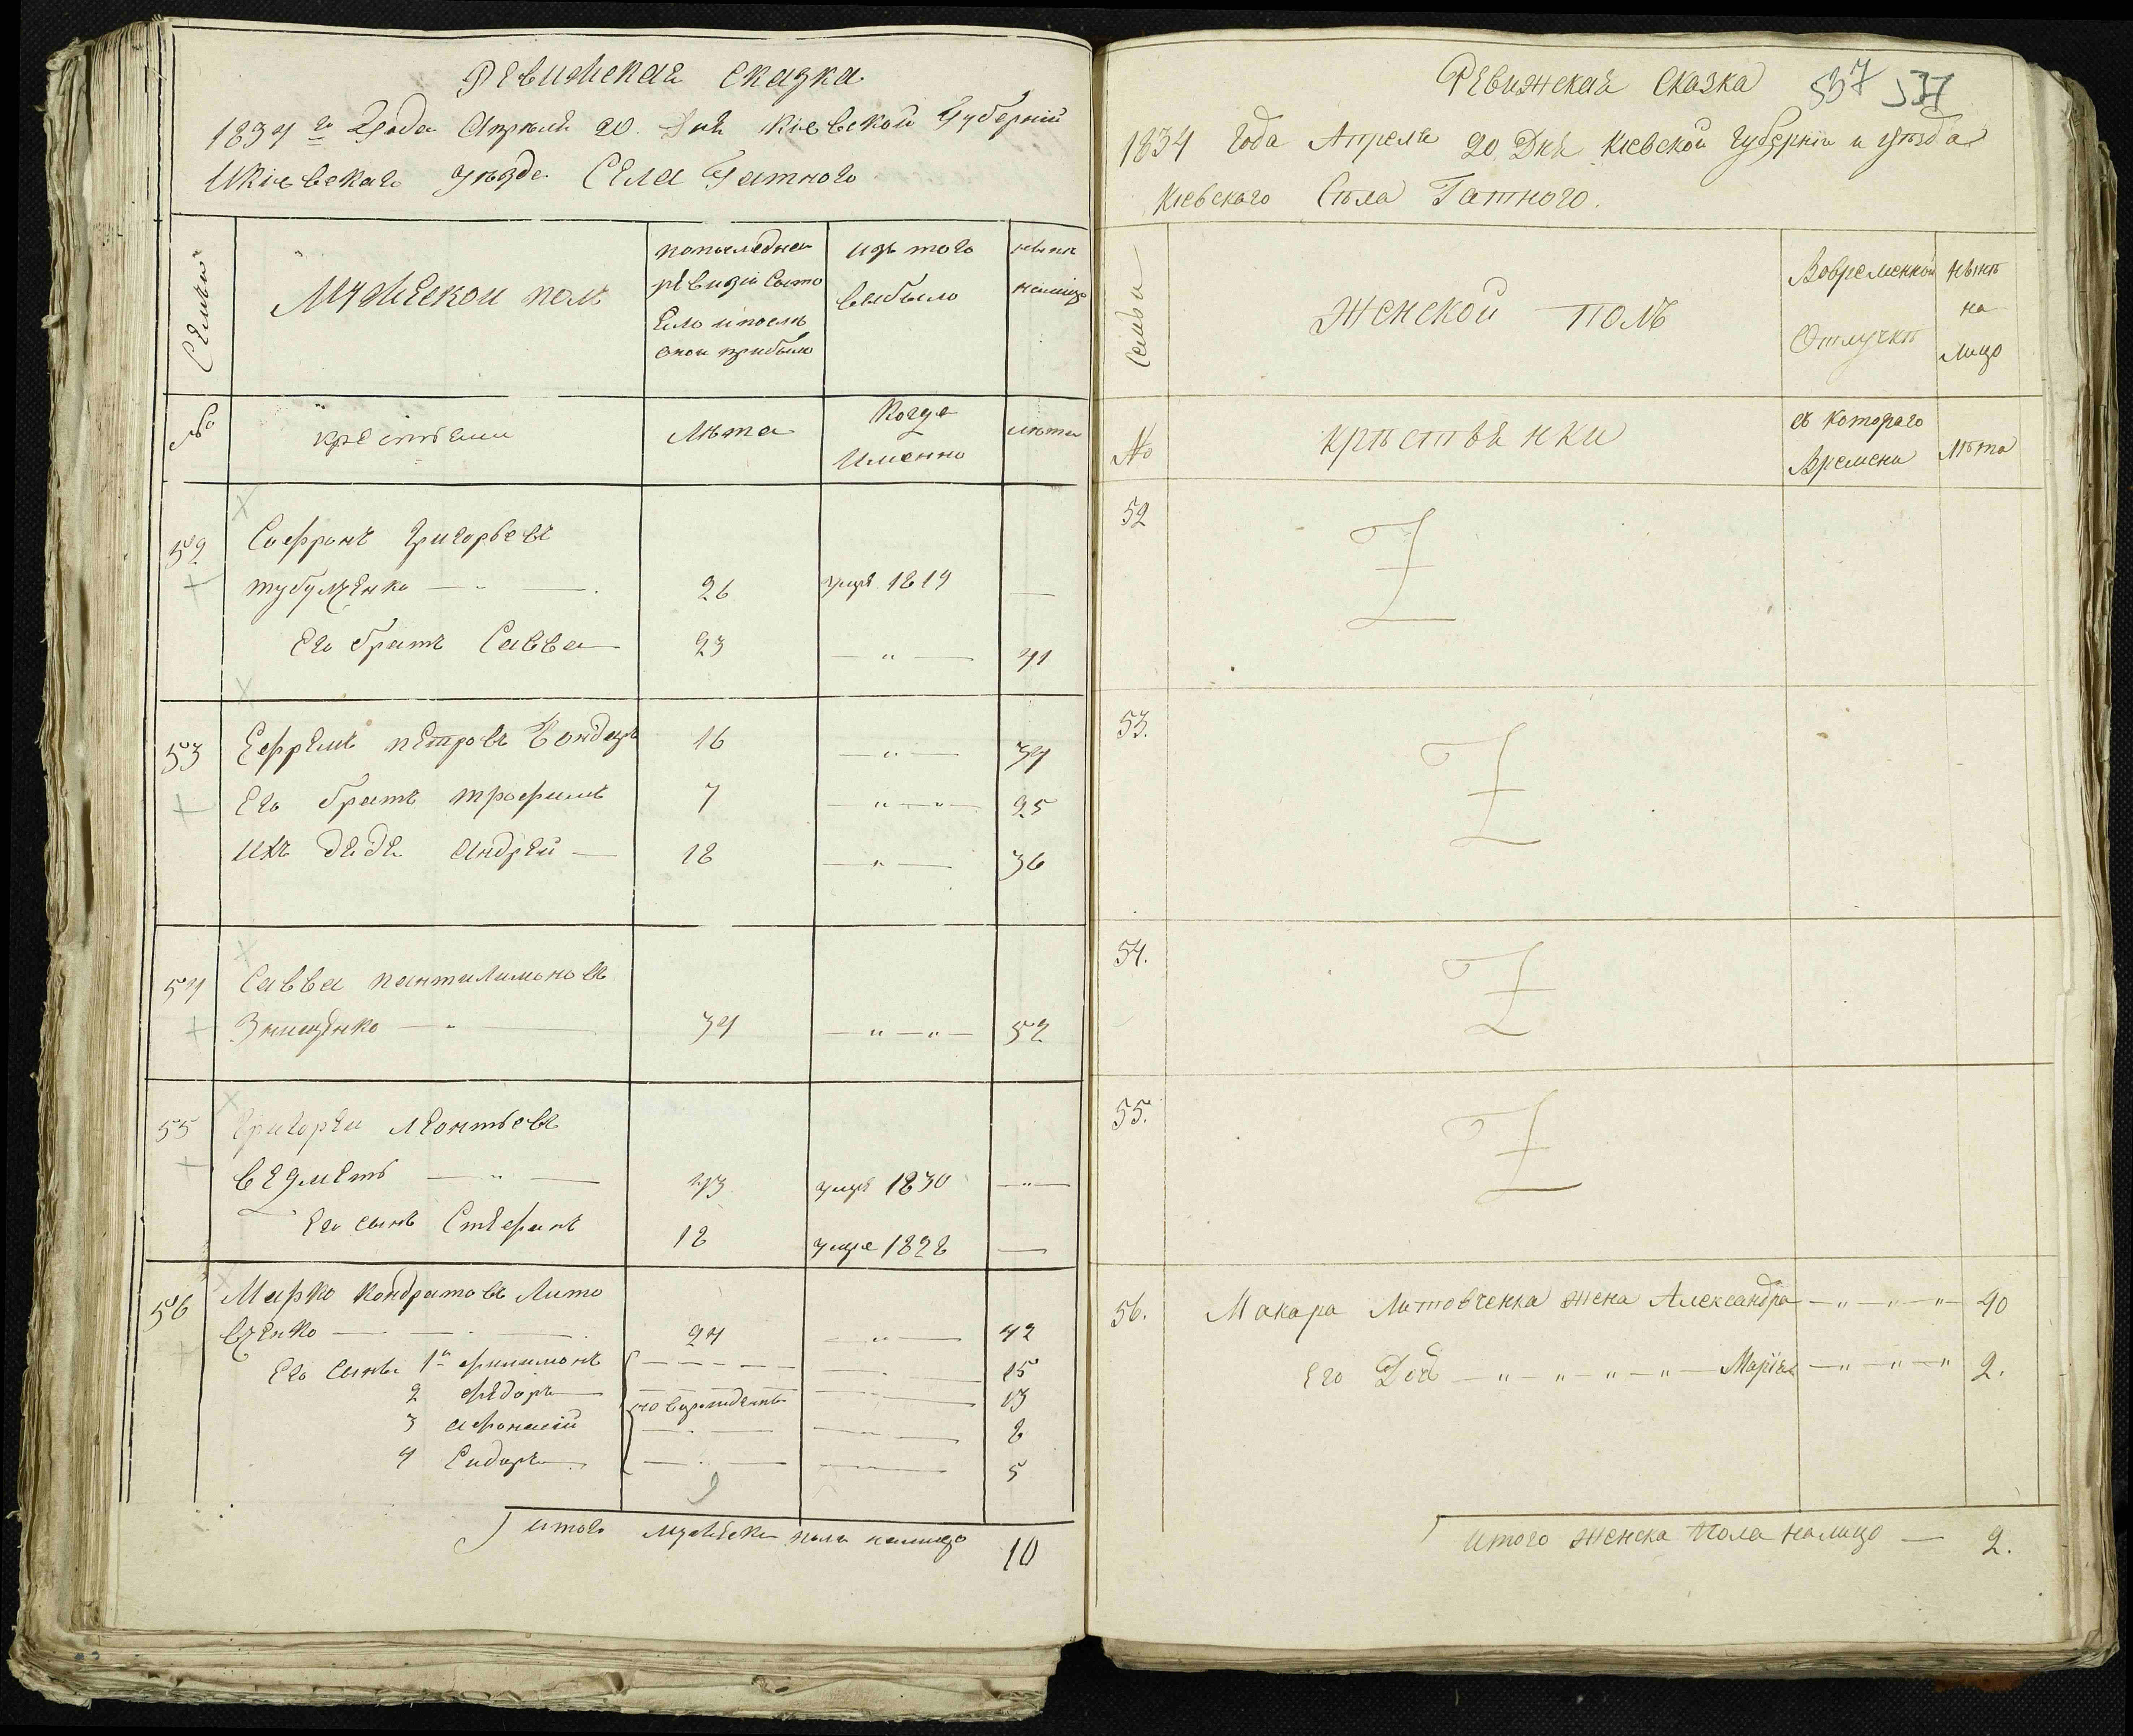 Ревижская сказка
1834 го Года Апреля 20 Дня Кіевской Губерніи
И Кіевскаго уезда Села Гатного
Семьи
Мужеской полъ
по последней
ревизіи состо
яло и после
оной прибыло
изъ того
выбыло
ныне
налицо
№
крестьяни
Лета
Когда
Именно
лета
52
Сафронъ Григорьевъ
26 умре 1819 —
Его братъ Савва — 23 — " — 41
53
Ефремъ петровъ Бондарь 16 — " — 34
Его братъ трофимъ 7 — " — " — 25
Ихъ дядя Андрей — 18 — " — 36
54
Савва пантилимоновъ
Знищенко — " — 34 — " — " — 52
55
Григорей леонтьевъ
ведметь — " — 43 умре 1830 — " —
Его сынъ Стефанъ 18 умре 1828 —
56
Марко Кондратовъ Лито
вченко — — — 24 — " — 42
Его сыны 1й филимонъ — — — — 15
2 федоръ — новорожденны — 13
3 афонасій — . — — — 8
4 Сидоръ — — . — — — 5
итого мужеска пола налицо 10
Ревижская Сказка 537 537
1834 Года Апреля 20 Дня Кіевской Губерніи и уезда
Кіевскаго Села Гатного.
Семьи
Женской полъ
Вовременной
Отлучке
ныне
на
лицо
№
крестьянки
съ Котораго
Времени
лета
52
53.
54.
55.
56. Макара Литовченка жена Александра — " — " — " 40
Его Дочь — " — " — " — " — Марія — " — " — " 2.
Итого женска пола налицо — 2.